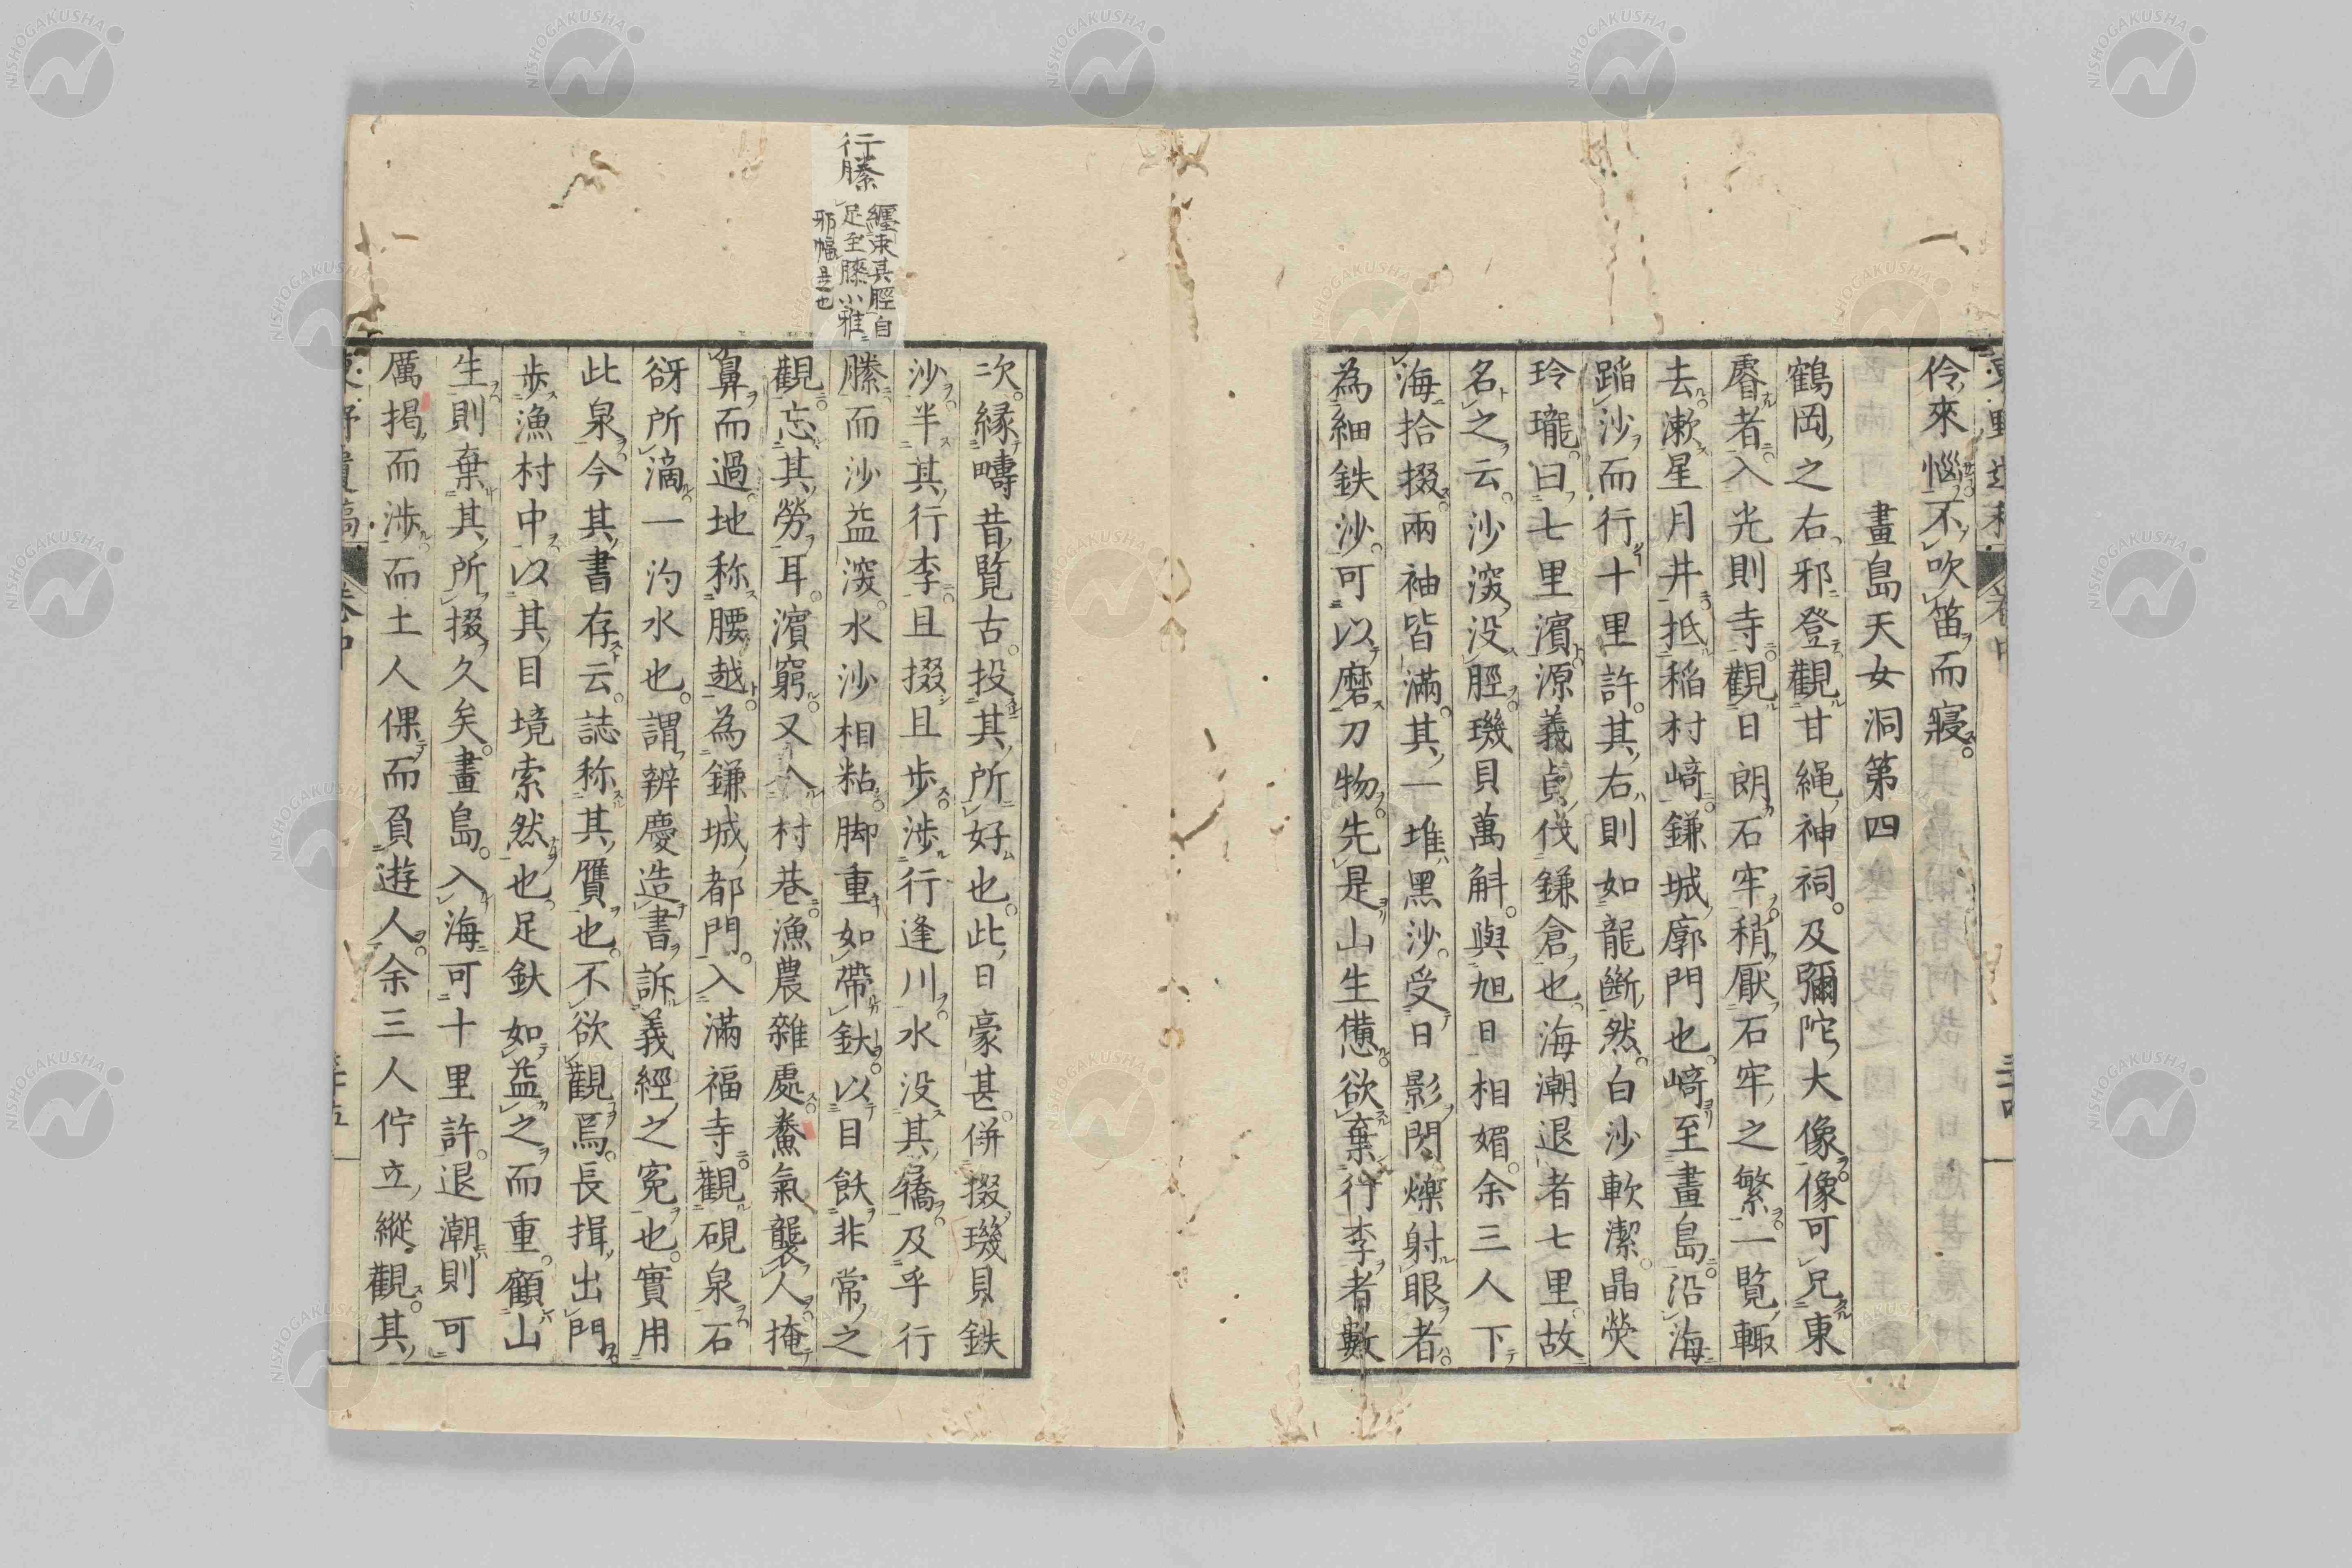 伶來惱不吹笛而寢
畫島天女洞第四
鶴岡之右邪登觀甘繩神祠及彌陀大像像可兄東
厪者入光則寺觀日朗石牢稍厭石牢之繁一覽輙
去漱星月井抵稲村﨑鎌城廓門也﨑至畫島沿海
蹈沙而行十里許其右則如龍斷然白沙軟潔晶熒
玲瓏曰七里濱源義貞伐鎌倉也海潮退者七里故
名之云沙深没脛璣貝萬斛與旭日相媚余三人下
海拾掇兩袖皆滿其一堆黑沙受日影閃爍射眼者
為細鉄沙可以磨刀物先是山生憊欲棄行李者數
次縁疇昔覽古投其所好也此日豪甚併掇璣貝鉄
沙半其行李且掇且歩渉行逢川水没其屩及乎行
縢而沙益深水沙相粘脚重如帶釱以目飫非常之
觀忘其勞耳濱窮又入村巷漁農雜處鮝氣襲人掩
鼻而過地称腰越為鎌城都門入滿福寺觀硯泉石
谺所滴一泃水也謂辨慶造書訴義經之寃也實用
此泉今其書存云誌称其贋也不欲觀焉長揖出門
歩漁村中以其目境索然也足釱如益之而重顧山
生則棄其所掇久矣畫島入海可十里許退潮則可
厲揭而渉而土人倮而負遊人余三人佇立縱觀其
行縢
纏束其脛自
足至膝小雅
邪幅是也
卷中
三十四
NISHOGAKUSHA